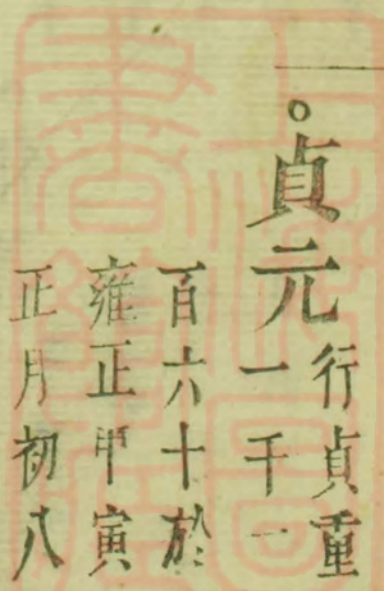 。貞元
行貞重
一千一
百六十於
雍正甲寅
正月初八